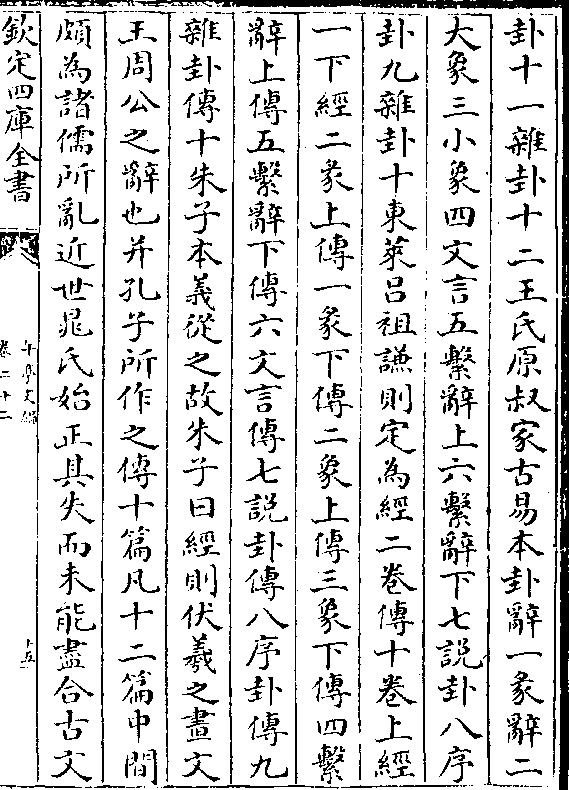 卦十一雜卦十二王氏原叔家古易本卦辭一彖辭二
大象三小象四文言五繫辭上六繫辭下七説卦八序
卦九雜卦十東萊吕祖謙則定為經二卷傳十卷上經
一下經二彖上傳一彖下傳二象上傳三象下傳四繫
辭上傳五繫辭下傳六文言傳七説卦傳八序卦傳九
雜卦傳十朱子本義從之故朱子曰經則伏羲之畫文
王周公之辭也并孔子所作之傳十篇凡十二篇中間
頗為諸儒所亂近世鼂氏始正其失而未能盡合古文
欽定四庫全書
午亭文編
卷二十二
十五